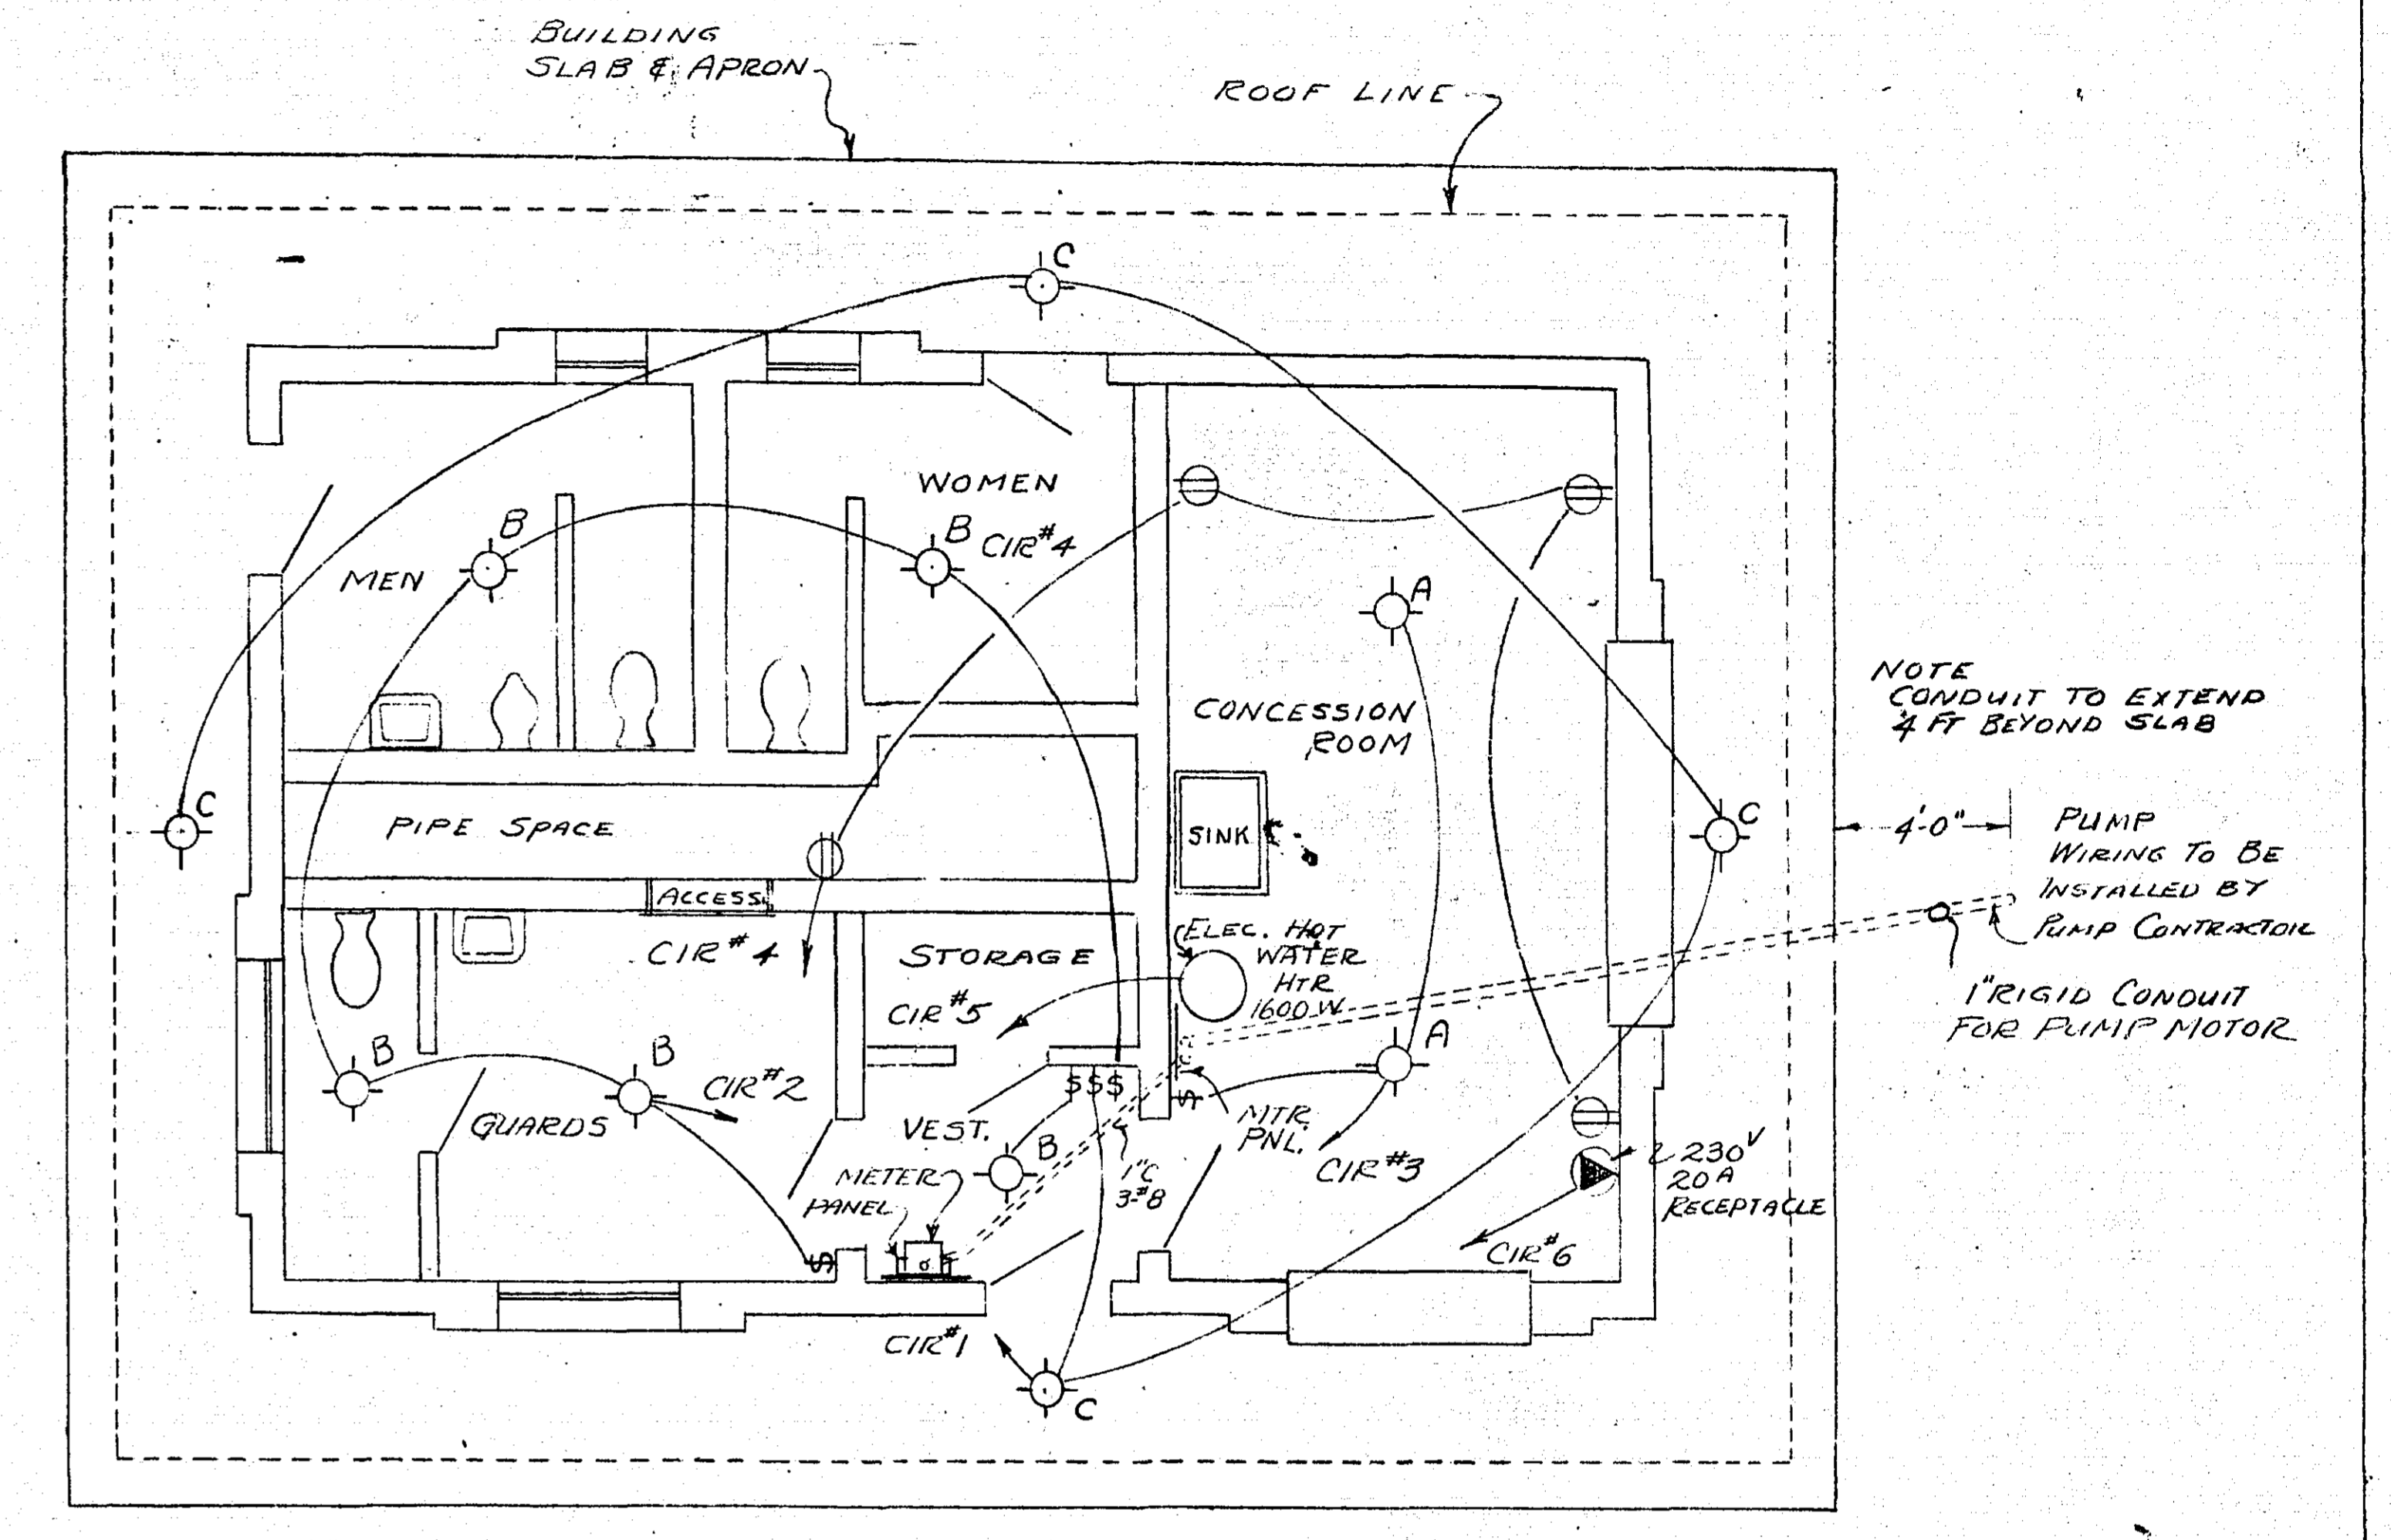 BUILDING
SLAB & APRON
ROOF LINE
C
WOMEN
B
B
CIR #4
MEN
A
CONCESSION
ROOM
NOTE
CONDUIT TO EXTEND
4 FT BEYOND SLAB
C
PIPE SPACE
SINK
C
4'-0"
PUMP
WIRING TO BE
INSTALLED BY
PUMP CONTRACTOR
ACCESS
CIR #4
STORAGE
ELEC. HOT
WATER
HTR
1600 W
CIR #5
1" RIGID CONDUIT
FOR PUMP MOTOR
B
B
A
CIR #2
$$$
$
GUARDS
VEST.
MTR.
PNL.
B
METER
PANEL
1"C
3-#8
CIR #3
230V
20A
RECEPTACLE
$
CIR #6
CIR #1
C